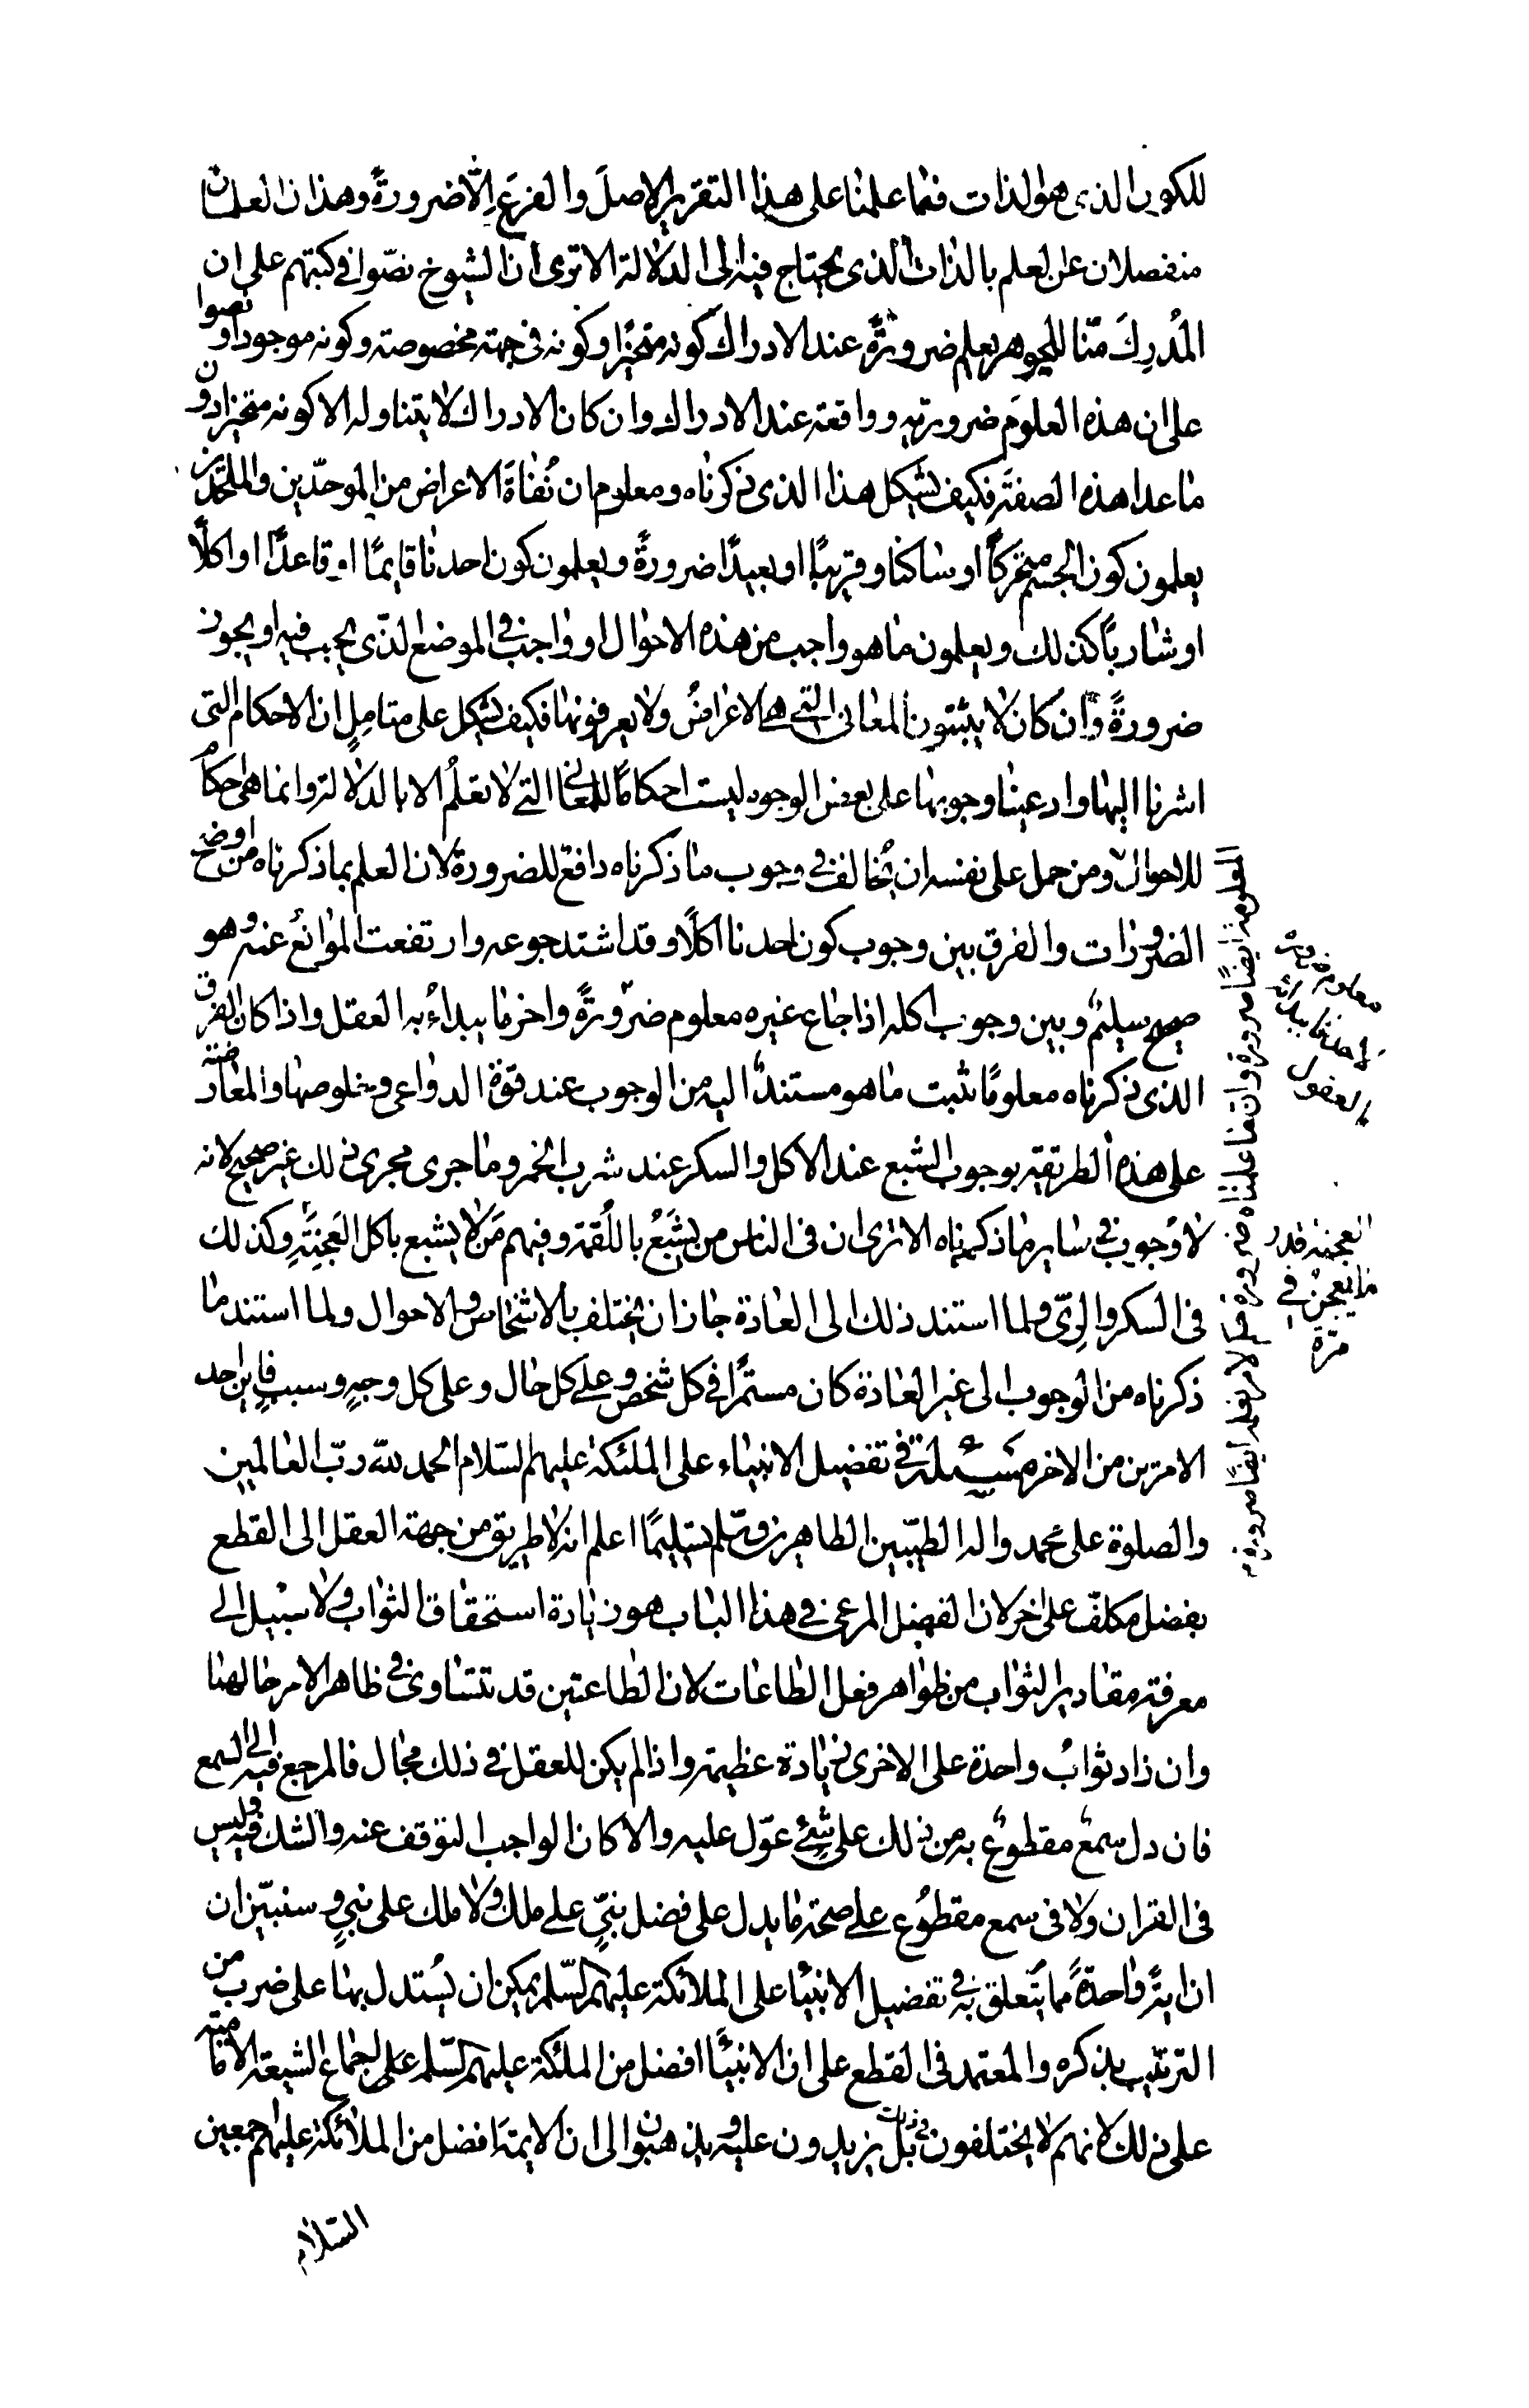 للكون الذى هو الذات فما علمنا على هذا التقرير الاصلَ والفرعَ اِلّا ضرورةً وهذان العلمان
منفصلان عن العلم بالذات الذى يحتاج فيه الى الدلالة الا ترى ان الشيوخ نصّوا فى كتبهم على ان
المُدرِكَ منّا للجوهر يعلم ضرورةً عند الادراك كونه متحيزا وكونه فى جهة مخصوصة وكونه موجودا ونصوا
على ان هذه العلوم ضرورية وواقعة عند الادراك وان كان الادراك لا يتناوله الا كونه متحيزا دون
ما عدا هذه الصفة فكيف يشكل هذا الذى ذكرناه ومعلوم ان نُفاةَ الاعراض من الموحّدين والملحدين
يعلمون كون الجسم متحركاً او ساكنا وقريبًا او بعيدًا ضرورةً ويعلمون كون احدنا قايمًا او قاعدًا او اكلًا
او شاربًا كذلك ويعلمون ما هو واجب من هذه الاحوال او واجب فى الموضع الذّى يجب فيه او يجوز
ضرورةً وان كان لا يثبتون المعانى التى هى الاعراضُ ولا يعرفونها فكيف يشكل على متامِلٍ ان الاحكام التى
اشرنا اليها وادعينا وجوبها على بعض الوجوه ليست احكامًا للمعانى التى لا تعلمُ الا بالدلالة وانما هى احكامٌ
للاحوال ومن حمل على نفسه ان يُخالف فى وجوب ما ذكرناه دافعٌ للضرورة لان العلم بما ذكرناه من اوضح
الضرورات والفرق بين وجوب كون احدنا اكلًا وقد اشتد جوعه وارتفعت الموانعُ عنه وهو
صحيح سليمٌ وبين وجوب اكله اذا جاع غيره معلوم ضرورةً واخر ما يبداءُ به العقل واذا كان الفرق
الذى ذكرناه معلومًا ثبت ما هو مستندٌ اليه من الوجوب عند قوة الدواعى وخلوصها والمعارضة
على هذه الطريقة بوجوب الشبع عند الاكل والسكر عند شرب الخمر وما جرى مجرى ذلك غير صحيح لانه
لا وُجوب فى ساير ما ذكرناه الا ترى ان فى الناس من يشبَعُ باللُقمة وفيهم مَن لا يشبع باكل العَجنَةِ وكذلك
فى السكر والرِىّ ولما استند ذلك الى العادة جاز ان يختلف بالاشخاص والاحوال ولما استند ما
ذكرناه من الوجوب الى غير العادة كان مستمرًا فى كل شخص وعلى كل حال وعلى كل وجهٍ وسبب فاين احد
الامرين من الاخر مسئلة فى تفضيل الانبياء على الملئكة عليهم السّلام الحمد لله ربّ العالمين
والصلوة على محمد واله الطيّبين الطاهرين وسلّم تسليمًا اعلم انه لا طريق من جهة العقل الى القطع
بفضل مكلفّ على اخر لان الفضل المرعى فى هذا الباب هو زيادة استحقاق الثواب ولا سبيل الى
معرفة مقادير الثواب من ظواهر فعل الطاعات لان الطاعتين قد تتساوى فى ظاهر الامر حالهما
وان زاد ثوابُ واحدة على الاخرى زيادة عظيمة واذا لم يكن للعقل فى ذلك مجال فالمرجع فيه الى السمع
فان دل سمعٌ مقطوعٌ به من ذلك على شئٍ عوّل عليه والا كان الواجب التوقف عنه والشك فيه وليس
فى القران ولا فى سمع مقطوُع على صحته ما يدل على فضل نبىٍّ على ملك ولا ملك على نبىٍ وسنبيّن ان
ان ايةً واحدةً مما يُتَعلق به فى تفضيل الانبيا على الملائكة عليهم السّلم يمكن ان يُستدل بها على ضرب من
الترتيب يذكره والمعتمد فى القطع على ان الانبيا افضل من الملئكة عليهم السّلم على اجماع الشيعة الامامية
على ذلك لانهم لا يختلفون فى ذلك بل يزيدون عليه ويذهبون الى ان الايمة افضل من الملائكة عليهم اجمعين
السّلام
العجنة قدر
ما يعجن فى
مرّة